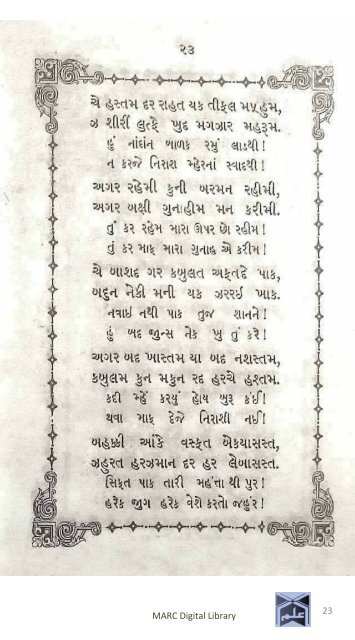 ૨૩
ચે હસ્તમ દર રાહત યક તીફલ મઝહુમ,
ઝ શીરીં લુત્ફે ખુદ મગઝાર મહરૂમ.
હું નાદાંન બાળક રમું લાડથી!
ન કરજે નિરાશ મ્હેરનાં સ્વાદથી!
અગર રહેમી કુની બરમન રહીમી,
અગર બક્ષી ગુનાહીમ મન કરીમી.
તું કર રહેમ મારા ઊપર છે રહીમ!
તું કર માફ મારા ગુનાહ એ કરીમ!
ચે બાશદ ગર કબુલત અફતદે પાક,
બદુન નેકી મની યક ઝરરઈ ખાક.
નવાઈ નથી પાક તુજ શાનને!
હું બદ જીન્સ નેક ખુ તું કરે!
અગર બદ ખાસ્તમ યા બદ નશસ્તમ,
કબુલમ કુન મકુન રદ હરચે હસ્તમ.
કદી મ્હેં કરયું હોય બુરૂ કંઈ!
થવા માફ દેજે નિરાશી નઈ!
બહક્કી આંકે વસ્ફત બેકયાસસ્ત,
ઝહુરત હરઝમાન દર હર લેબાસસ્ત.
સિફત પાક તારી મહત્તા થી પુર!
હરેક જુગ હરેક વેશે કરતો જહુર!
MARC Digital Library
23